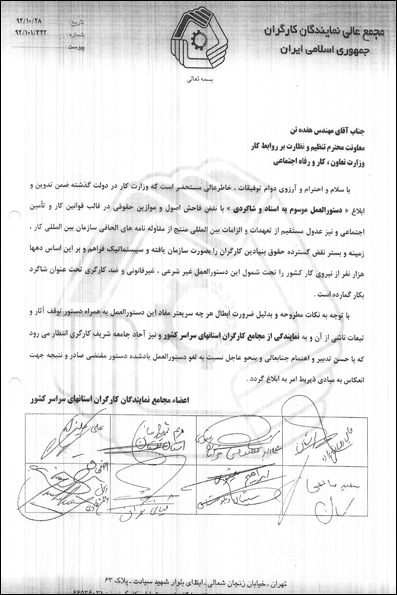 مجمع عالی نمایندگان کارگران
جمهوری اسلامی ایران
تاریخ: ۹۲/۱۰/۲۸
شماره: ۹۲/۱۰۱/۲۲۲
پیوست:
بسمه تعالی
جناب آقای مهندس هفده تن
معاونت محترم تنظیم و نظارت بر روابط کار
وزارت تعاون ، کار و رفاه اجتماعی
با سلام و احترام و آرزوی دوام توفیقات ، خاطرعالی مستحضر است که وزارت کار در دولت گذشته ضمن تدوین و
ابلاغ « دستورالعمل موسوم به استاد و شاگردی » با نقض فاحش اصول و موازین حقوقی در قالب قوانین کار و تأمین
اجتماعی و نیز عدول مستقیم از تعهدات و الزامات بین المللی منتج از مقاوله نامه های الحاقی سازمان بین المللی کار ،
زمینه و بستر نقض گسترده حقوق بنیادین کارگران را بصورت سازمان یافته و سیستماتیک فراهم و بر این اساس دهها
هزار نفر از نیروی کار کشور را تحت شمول این دستورالعمل غیر شرعی ، غیرقانونی و ضد کارگری تحت عنوان شاگرد
بکار گمارده است .
با توجه به نکات مطروحه و بدلیل ضرورت ابطال هر چه سریعتر مفاد این دستورالعمل به همراه دستور توقف آثار و
تبعات ناشی از آن و به نمایندگی از مجامع کارگران استانهای سراسر کشور و نیز آحاد جامعه شریف کارگری انتظار می رود
که با حسن تدبیر و اهتمام جنابعالی و بنحو عاجل نسبت به لغو دستورالعمل یادشده دستور مقتضی صادر و نتیجه جهت
انعکاس به مبادی ذیربط امر به ابلاغ گردد .
اعضاء مجامع نمایندگان کارگران استانهای سراسر کشور
تهران ، خیابان زنجان شمالی ، ابتدای بلوار شهید سیادت ، پلاک ۶۳